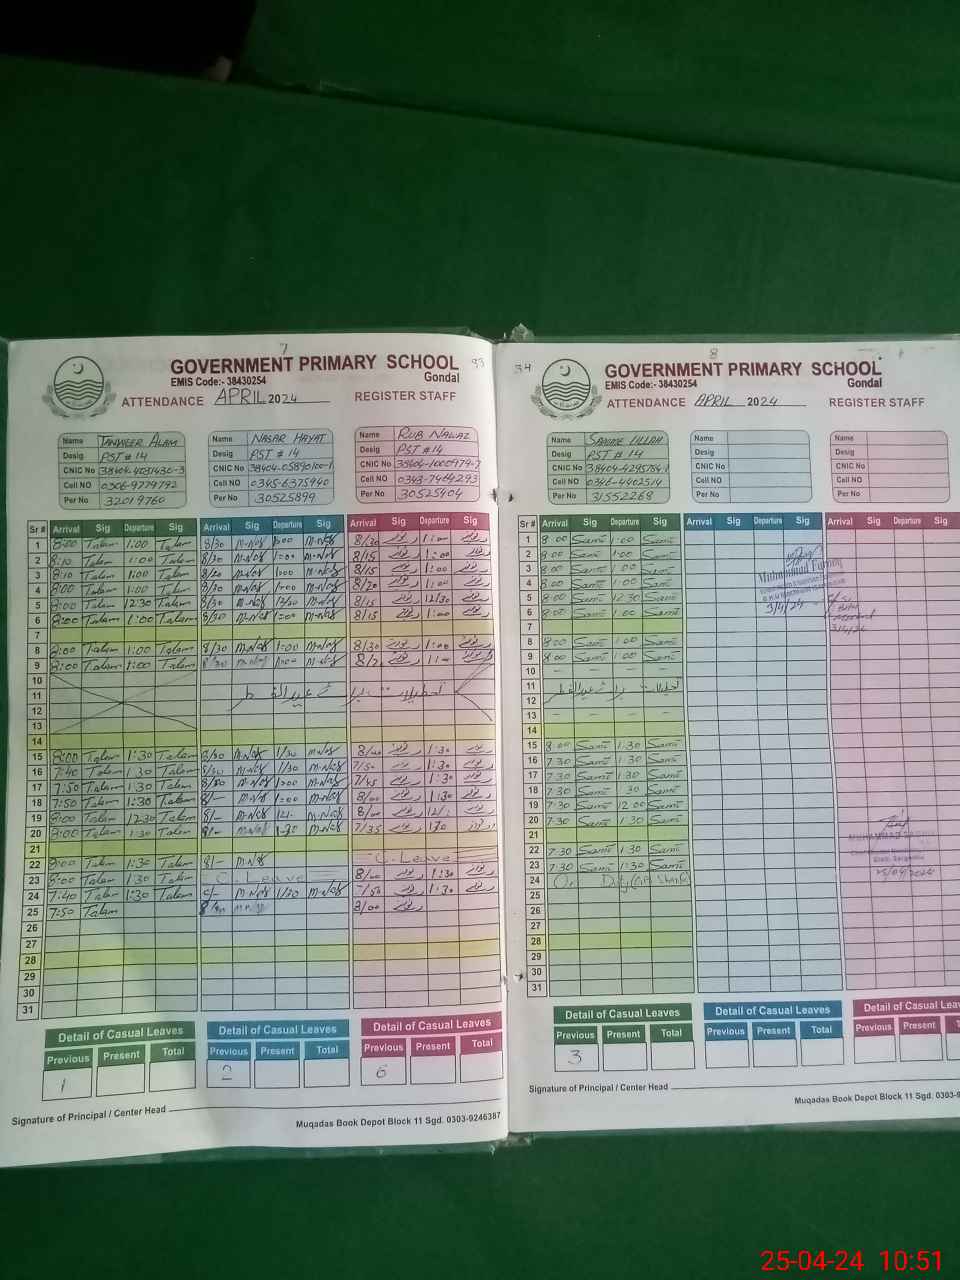 7
GOVERNMENT PRIMARY SCHOOL 93
EMIS Code:- 38430254 Gondal
ATTENDANCE APRIL 2024 REGISTER STAFF
Name TANVEER ALAM
Desig PST # 14
CNIC No
Cell NO 0306-9779792
Per No 32019760
Name NASAR HAYAT
Desig PST # 14
CNIC No 38404-0589010-1
Cell NO 0345-6375940
Per No 30525899
Name RUB NAWAZ
Desig PST # 14
CNIC No 38404-1000979-7
Cell NO 0343-7464293
Per No 30525404
Sr # Arrival Sig Departure Sig Arrival Sig Departure Sig Arrival Sig Departure Sig
1 8:00 Talam 1:00 Talam 8/30 M-Nas 8/30 1:00
2 8:10 Talam 1:00 Talam 8/30 M-Nas 1:00 M-Nas 8/15 1:00
3 8:10 Talam 1:00 Talam 8/20 M-Nas M-Nas 8/15 1:00
4 8:00 Talam 1:00 Talam 8/30 M-Nas M-Nas 8/20 1:00
5 8:00 Talam 12:30 Talam 8/30 M-Nas 12/30 M-Nas 8/15 12/30
6 8:00 Talam 1:00 Talam M-Nas 1:00 M-Nas 8/15 1:00
7
8 8:00 Talam 1:00 Talam 8/30 M-Nas 1:00 M-Nas 8/30 1:00
9 8:00 Talam 1:00 Talam 8/30 M-Nas M-Nas 1:00
10
11 تعطیلات عید الفطر
12
13
14
15 8:00 Talam 1:30 Talam 8/30 M-Nas 1/30 M-Nas 8/00 1:30
16 7:40 Talam 1:30 Talam 8/30 M-Nas 1/30 M-Nas 7/50 1:30
17 7:50 Talam 1:30 Talam M-Nas M-Nas 7/45 1:30
18 7:50 Talam 1:30 Talam 8/- M-Nas M-Nas 8/00 1:30
19 8:00 Talam 12:30 Talam 8/- M-Nas M-Nas 8/00
20 8:00 Talam 1:30 Talam 8/- M-Nas 1:30 M-Nas 7/35 1:30
21
22 8:00 Talam 1:30 Talam 8/- M-Nas C. Leave
23 8:00 Talam 1:30 Talam C. Leave 8/00 1:30
24 7:40 Talam 1:30 Talam 8/- M-Nas 1/30 M-Nas 7/50 1:30
25 7:50 Talam 8/00
26
27
28
29
30
31
Detail of Casual Leaves Detail of Casual Leaves Detail of Casual Leaves
Previous Present Total Previous Present Total Previous Present Total
1 2 6
Signature of Principal / Center Head
Muqadas Book Depot Block 11 Sgd. 0303-9246387
8
94 GOVERNMENT PRIMARY SCHOOL
EMIS Code:- 38430254 Gondal
ATTENDANCE APRIL 2024 REGISTER STAFF
Name SAMIE ULLAH
Desig PST # 14
CNIC No 38404-4295784-1
Cell NO 0346-4402514
Per No 31552268
Name
Desig
CNIC No
Cell NO
Per No
Name
Desig
CNIC No
Cell NO
Per No
Sr # Arrival Sig Departure Sig Arrival Sig Departure Sig Arrival Sig Departure Sig
1 8:00 Sami 1:00 Sami
2 8:00 Sami 1:00 Sami
3 8:00 Sami 1:00 Sami
4 8:00 Sami 1:00 Sami
5 8:00 Sami 12:30 Sami
6 8:00 Sami 1:00 Sami
7
8 8:00 Sami 1:00 Sami
9 8:00 Sami 1:00 Sami
10 - - - -
11 تعطیلات عید الفطر
12
13 - - - -
14
15 8:00 Sami 1:30 Sami
16 7:30 Sami 1:30 Sami
17 7:30 Sami 1:30 Sami
18 7:30 Sami 30 Sami
19 7:30 Sami 12:00 Sami
20 7:30 Sami 1:30 Sami
21
22 7:30 Sami 1:30 Sami
23 7:30 Sami 1:30 Sami
24 On Duty
25
26
27
28
29
30
31
Muhammad Farooq
3/4/24
MUHAMMAD
25/04/2024
Detail of Casual Leaves Detail of Casual Leaves Detail of Casual Leaves
Previous Present Total Previous Present Total Previous Present
3
Signature of Principal / Center Head
Muqadas Book Depot Block 11 Sgd. 0303-9
25-04-24 10:51